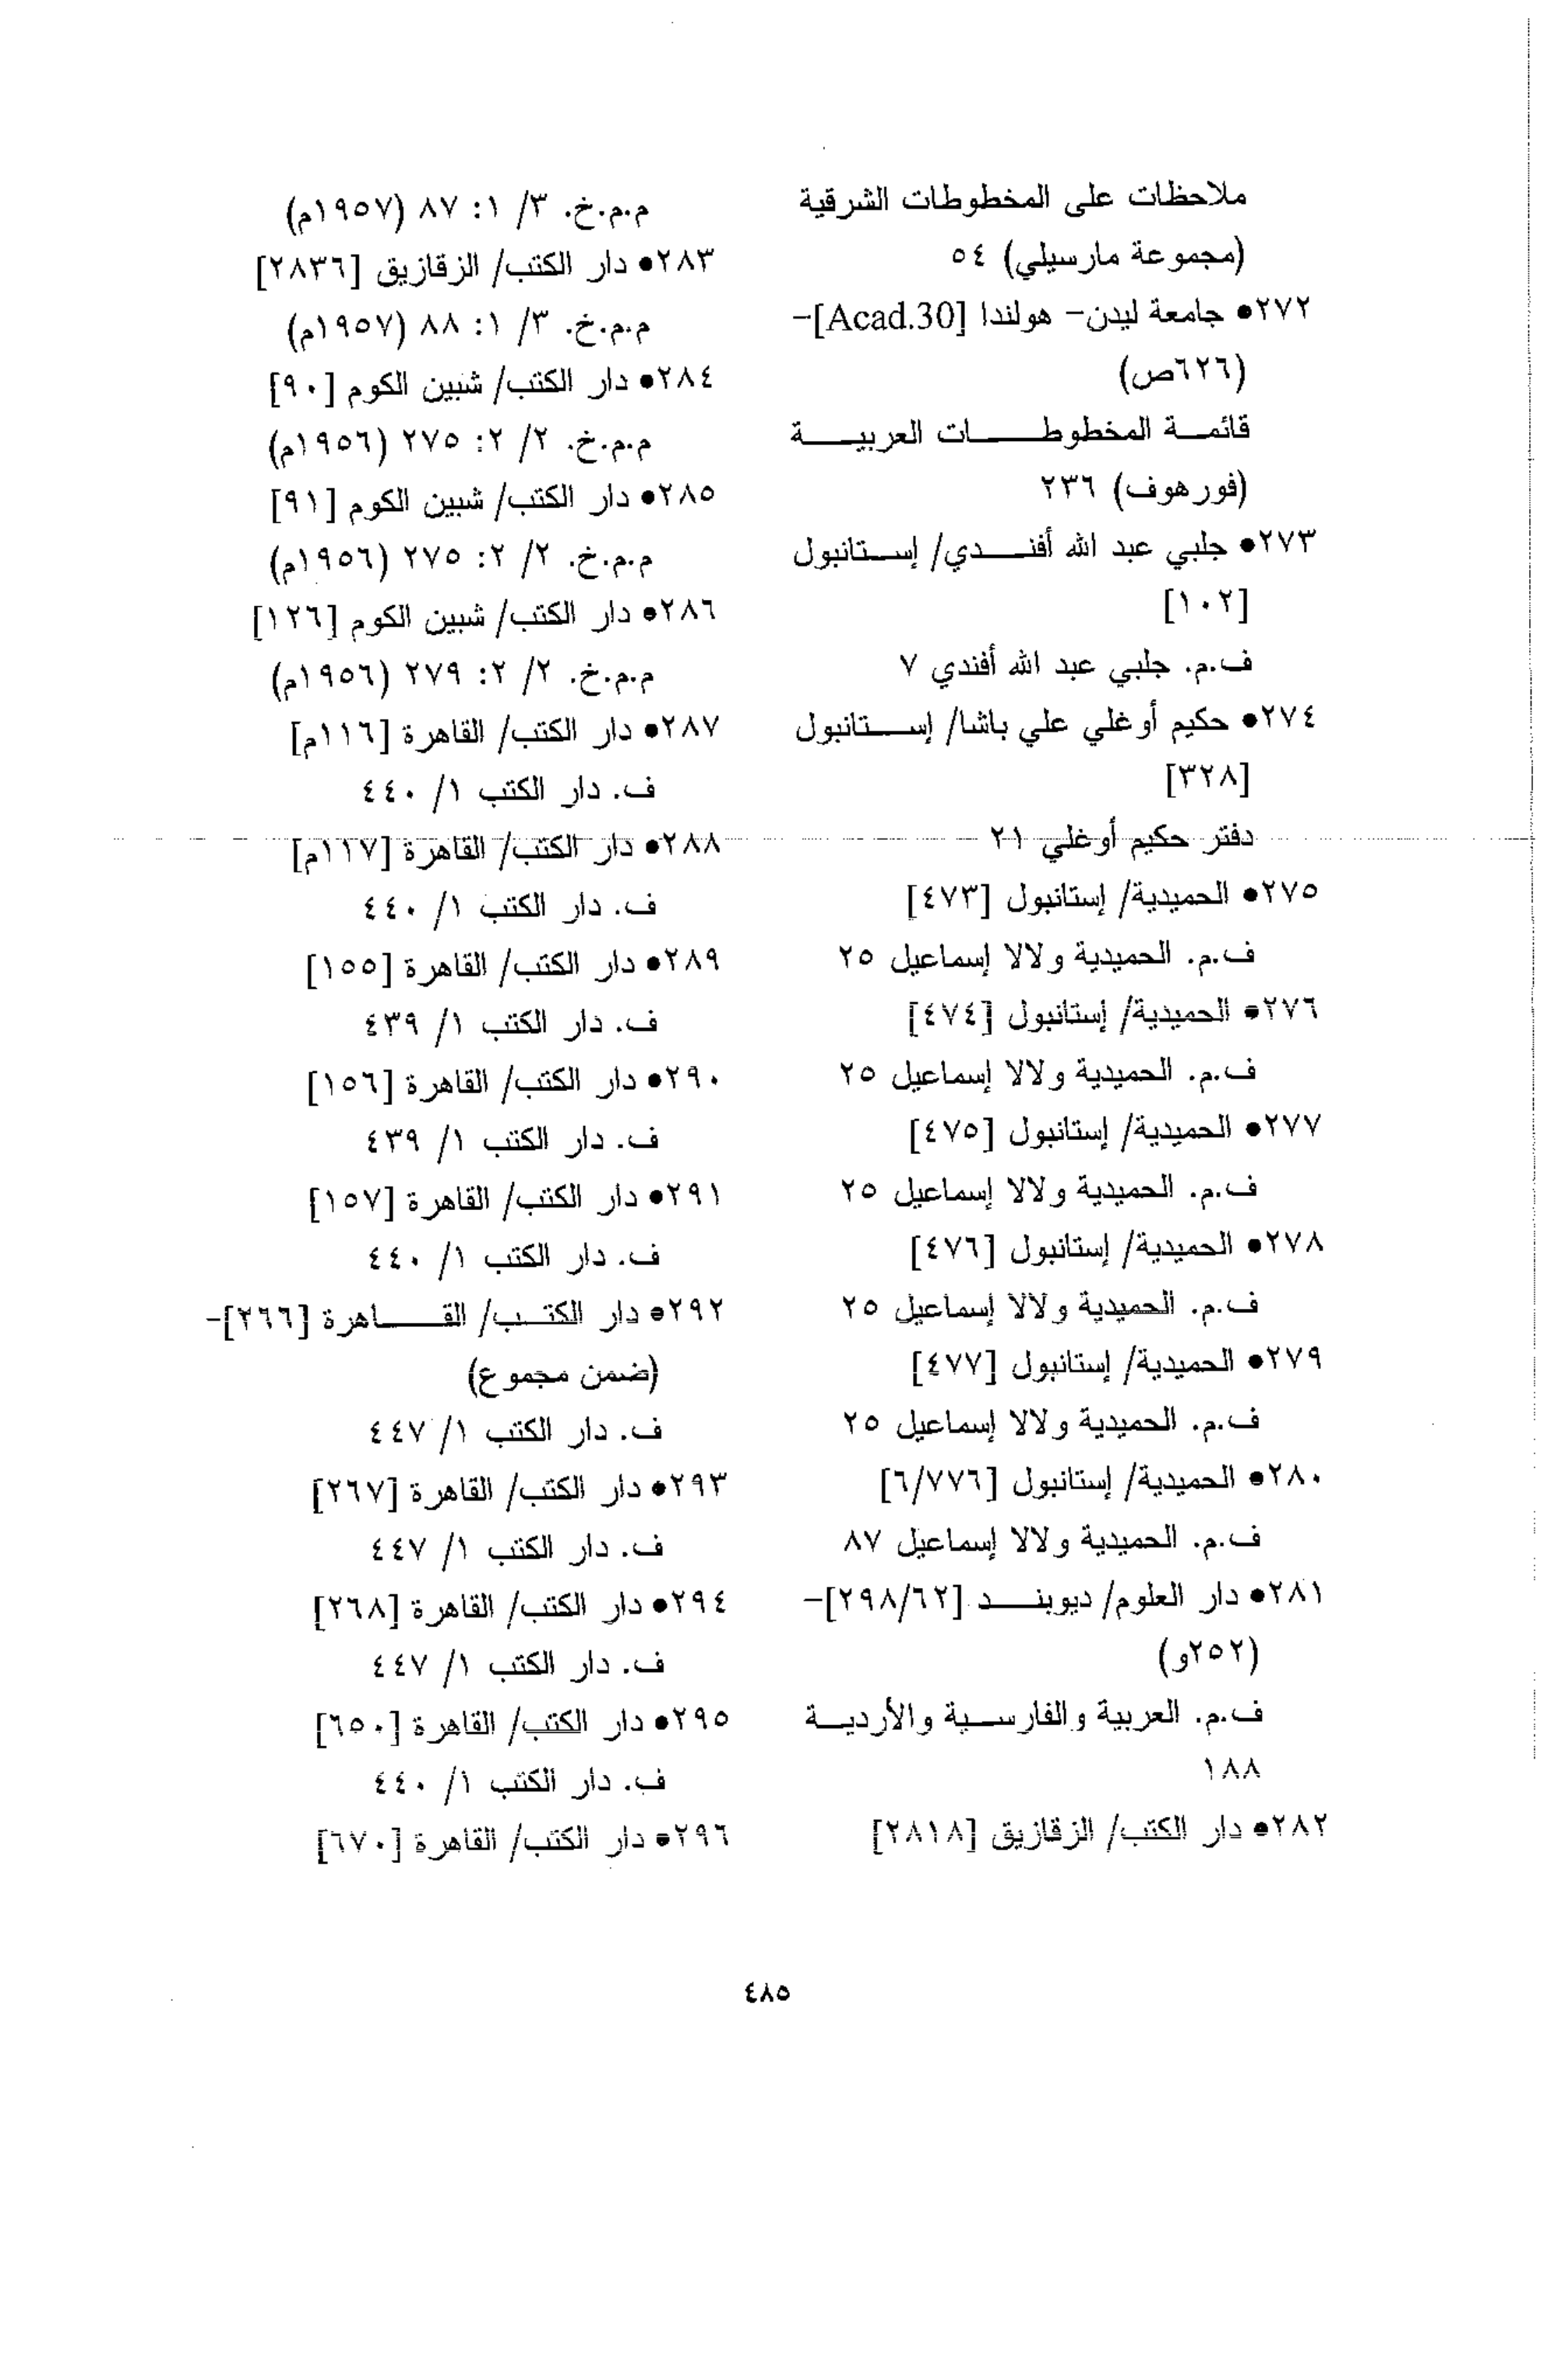 ملاحظات على المخطوطات الشرقية
(مجموعة مارسيلي) ٥٤
٢٧٢● جامعة ليدن- هولندا [Acad.30]-
(٦٢٦ص)
قائمة المخطوطات العربية
(فورهوف) ٢٣٦
٢٧٣● جلبي عبد الله أفندي/ إستانبول
[١٠٢]
ف.م. جلبي عبد الله أفندي ٧
٢٧٤● حكيم أوغلي علي باشا/ إستانبول
[٣٢٨]
دفتر حكيم أوغلي ٢١
٢٧٥● الحميدية/ إستانبول [٤٧٣]
ف.م. الحميدية ولالا إسماعيل ٢٥
٢٧٦● الحميدية/ إستانبول [٤٧٤]
ف.م. الحميدية ولالا إسماعيل ٢٥
٢٧٧● الحميدية/ إستانبول [٤٧٥]
ف.م. الحميدية ولالا إسماعيل ٢٥
٢٧٨● الحميدية/ إستانبول [٤٧٦]
ف.م. الحميدية ولالا إسماعيل ٢٥
٢٧٩● الحميدية/ إستانبول [٤٧٧]
ف.م. الحميدية ولالا إسماعيل ٢٥
٢٨٠● الحميدية/ إستانبول [٦/٧٧٦]
ف.م. الحميدية ولالا إسماعيل ٨٧
٢٨١● دار العلوم/ ديوبند [٢٩٨/٦٢]-
(٢٥٢و)
ف.م. العربية والفارسية والأردية
١٨٨
٢٨٢● دار الكتب/ الزقازيق [٢٨١٨]
م.م.خ. ٣/ ١: ٨٧ (١٩٥٧م)
٢٨٣● دار الكتب/ الزقازيق [٢٨٣٦]
م.م.خ. ٣/ ١: ٨٨ (١٩٥٧م)
٢٨٤● دار الكتب/ شبين الكوم [٩٠]
م.م.خ. ٢/ ٢: ٢٧٥ (١٩٥٦م)
٢٨٥● دار الكتب/ شبين الكوم [٩١]
م.م.خ. ٢/ ٢: ٢٧٥ (١٩٥٦م)
٢٨٦● دار الكتب/ شبين الكوم [١٢٦]
م.م.خ. ٢/ ٢: ٢٧٩ (١٩٥٦م)
٢٨٧● دار الكتب/ القاهرة [١١٦م]
ف. دار الكتب ١/ ٤٤٠
٢٨٨● دار الكتب/ القاهرة [١١٧م]
ف. دار الكتب ١/ ٤٤٠
٢٨٩● دار الكتب/ القاهرة [١٥٥]
ف. دار الكتب ١/ ٤٣٩
٢٩٠● دار الكتب/ القاهرة [١٥٦]
ف. دار الكتب ١/ ٤٣٩
٢٩١● دار الكتب/ القاهرة [١٥٧]
ف. دار الكتب ١/ ٤٤٠
٢٩٢● دار الكتب/ القاهرة [٢٦٦]-
(ضمن مجموع)
ف. دار الكتب ١/ ٤٤٧
٢٩٣● دار الكتب/ القاهرة [٢٦٧]
ف. دار الكتب ١/ ٤٤٧
٢٩٤● دار الكتب/ القاهرة [٢٦٨]
ف. دار الكتب ١/ ٤٤٧
٢٩٥● دار الكتب/ القاهرة [٦٥٠]
ف. دار الكتب ١/ ٤٤٠
٢٩٦● دار الكتب/ القاهرة [٦٧٠]
٤٨٥